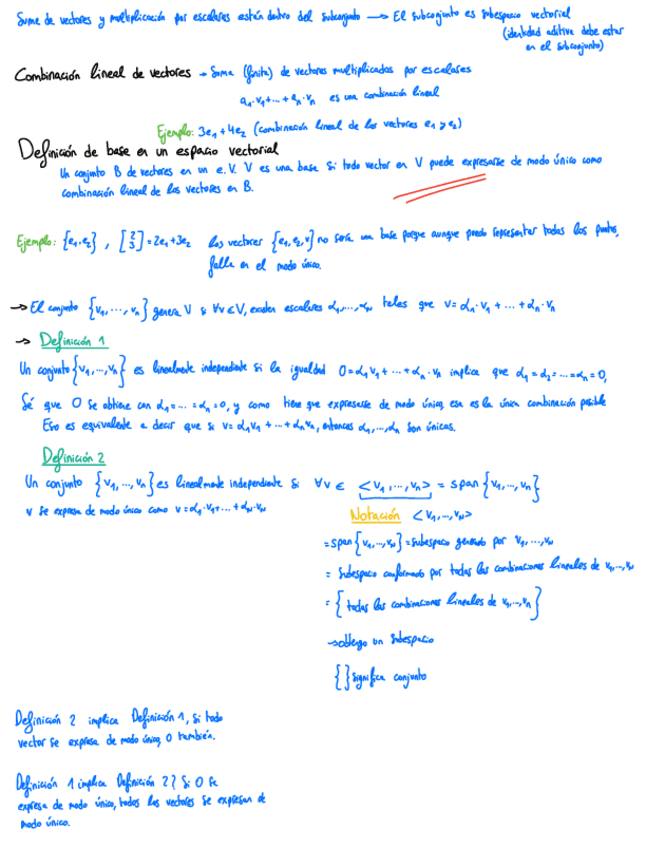 Suma de vectores y multiplicación por escalares están dentro del subconjunto → El subconjunto es subespacio vectorial
(identidad aditiva debe estar
en el subconjunto)
Combinación lineal de vectores → Suma (finita) de vectores multiplicados por escalares
a₁·v₁+...+aₙ·vₙ es una combinación lineal
Ejemplo: 3e₁+4e₂ (combinación lineal de los vectores e₁ y e₂)
Definición de base en un espacio vectorial
Un conjunto B de vectores en un e.V. V es una base si todo vector en V puede expresarse de modo único como
combinación lineal de los vectores en B.
Ejemplo: {e₁,e₂} , [2 3] = 2e₁+3e₂ los vectores {e₁,e₂,v} no sería una base porque aunque puedo representar todos los puntos,
falla en el modo único.
→ El conjunto {v₁,...,vₙ} genera V si ∀v∈V, existen escalares α₁,...,αₙ tales que v=α₁·v₁+...+αₙ·vₙ
→ Definición 1
Un conjunto {v₁,...,vₙ} es linealmente independiente si la igualdad 0=α₁v₁+...+αₙ·vₙ implica que α₁=α₂=...=αₙ=0,
Sé que 0 se obtiene con α₁=...=αₙ=0, y como tiene que expresarse de modo único, esa es la única combinación posible
Eso es equivalente a decir que si v=α₁v₁+...+αₙvₙ, entonces α₁,...,αₙ son únicas.
Definición 2
Un conjunto {v₁,...,vₙ} es linealmente independiente si ∀v∈ <v₁,...,vₙ> = span{v₁,...,vₙ}
v se expresa de modo único como v=α₁·v₁+...+αₙ·vₙ
Notación <v₁,...,vₙ>
=span{v₁,...,vₙ}=subespacio generado por v₁,...,vₙ
= Subespacio conformado por todas las combinaciones lineales de v₁,...,vₙ
= {todas las combinaciones lineales de v₁,...,vₙ}
→obtengo un subespacio
{} significa conjunto
Definición 2 implica Definición 1, si todo
vector se expresa de modo único, 0 también.
Definición 1 implica Definición 2? Si 0 se
expresa de modo único, todos los vectores se expresan de
modo único.